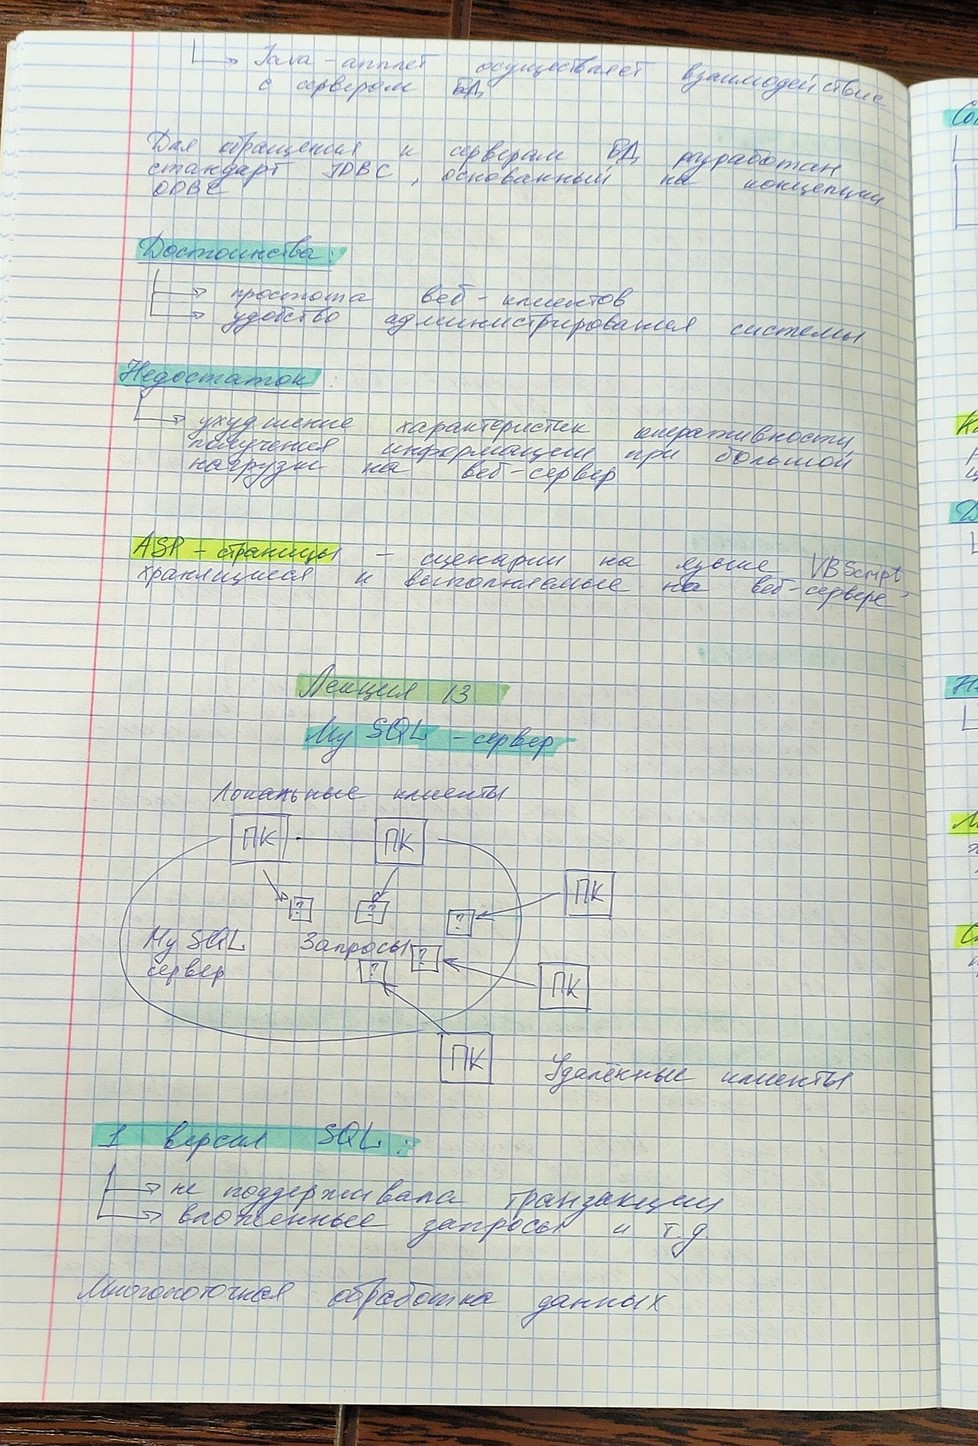 Java-апплет осуществляет взаимодействие
с сервером БД
Для обращения к серверам БД разработан
стандарт JDBC, основанный на концепции
ODBC
Достоинства:
простота веб-клиентов
удобство администрирования системы
Недостаток:
ухудшение характеристик оперативности
получения информации при большой
нагрузки на веб-сервер
ASP-страницы - сценарии на языке VBScript,
хранящиеся и выполняемые на веб-сервере
Лекция 13
My SQL-сервер
Локальные клиенты
ПК ПК
ПК
? ? ?
My SQL Запросы ?
сервер ?
ПК
ПК
Удалённые клиенты
1 версия SQL:
не поддерживала транзакции
вложенные запросы и т.д
Многопоточная обработка данных